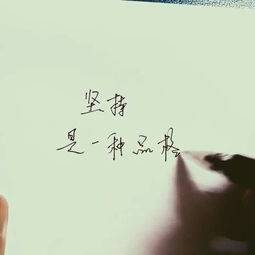 坚持
是一种品格